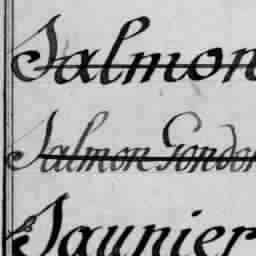 Salmon
Salmon Gondor
Saunier